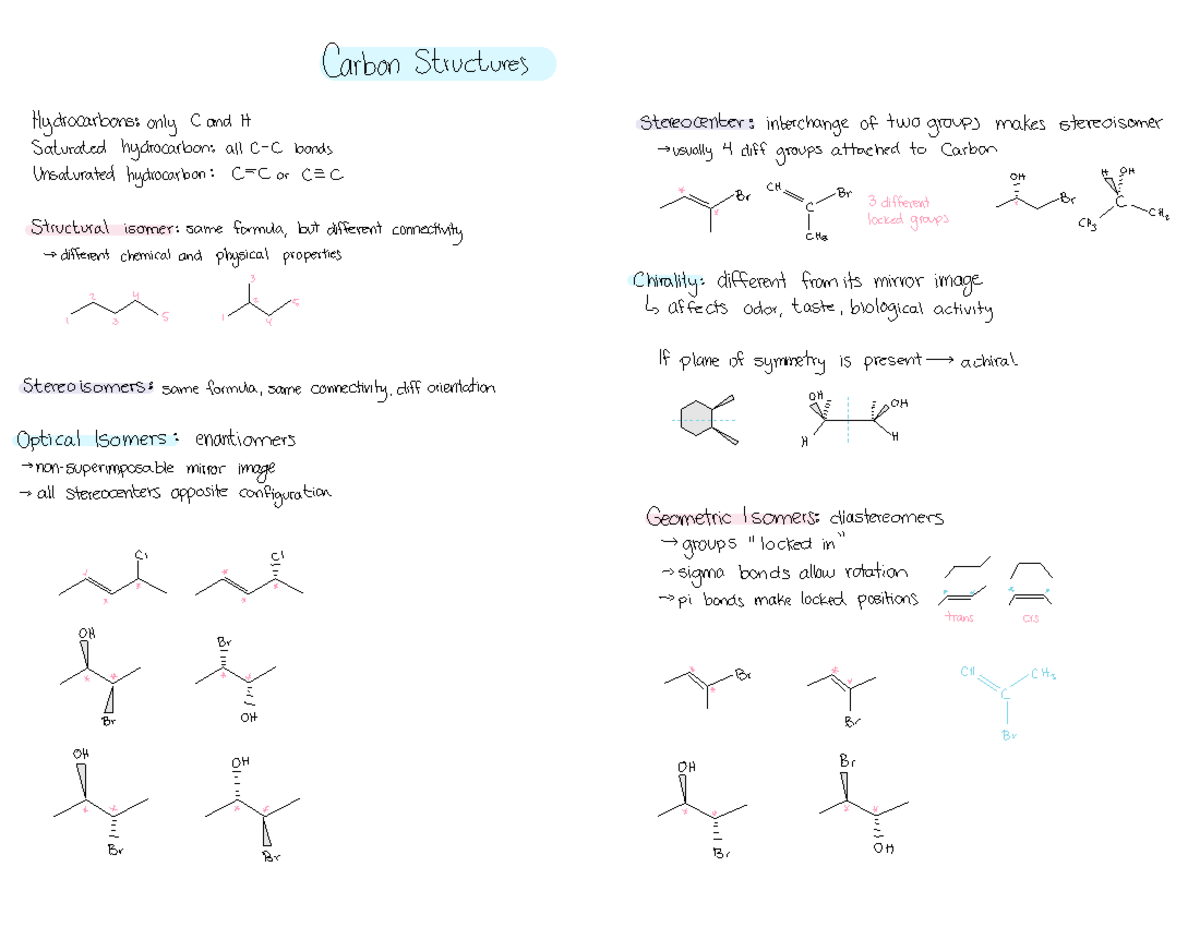 Carbon Structures
Hydrocarbons: only C and H
Saturated hydrocarbon: all C-C bonds
Unsaturated hydrocarbon: C=C or C≡C
Structural isomer: same formula, but different connectivity
→ different chemical and physical properties
1 2 3 4 5
1 2 3 4 5
Stereoisomers: same formula, same connectivity, diff orientation
Optical Isomers: enantiomers
→ non-superimposable mirror image
→ all stereocenters opposite configuration
Cl Cl
OH Br
Br OH
OH OH
Br Br
Stereocenter: interchange of two groups makes stereoisomer
→ usually 4 diff groups attached to Carbon
Br CH Br
C
CH3
3 different
locked groups
OH Br
H OH
C
CH3 CH2
Chirality: different from its mirror image
↳ affects odor, taste, biological activity
If plane of symmetry is present → achiral
OH OH
H H
Geometric Isomers: diastereomers
→ groups "locked in"
→ sigma bonds allow rotation
→ pi bonds make locked positions
trans cis
Br
Br
CH CH3
C
Br
OH Br
Br OH